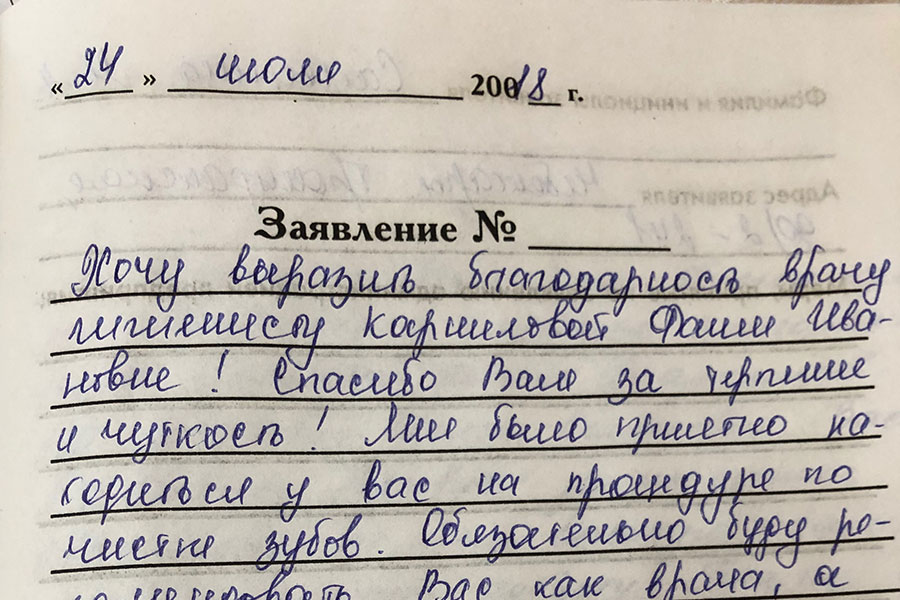 «24» июля 20018 г.
Заявление № ______
Хочу выразить благодарность врачу
гигиенисту Корниловой Фаине Ива-
новне! Спасибо Вам за терпение
и чуткость! Мне было приятно на-
ходиться у вас на процедуре по
чистке зубов. Обязательно буду ре-
комендовать Вас как врача, а